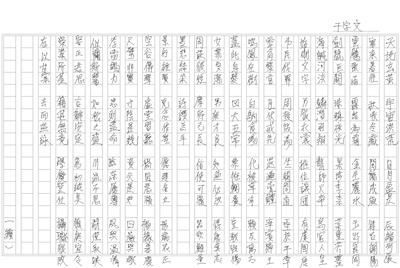 千字文
天地玄黄 宇宙洪荒 日月盈昃 辰宿列張
寒来暑往 秋収冬蔵 閏余成歳 律呂調陽
雲騰致雨 露結為霜 金生麗水 玉出崑岡
剣號巨闕 珠称夜光 果珍李柰 菜重芥薑
海鹹河淡 鱗潜羽翔 龍師火帝 鳥官人皇
始制文字 乃服衣裳 推位譲国 有虞陶唐
弔民伐罪 周発殷湯 坐朝問道 垂拱平章
愛育黎首 臣伏戎羌 遐邇壹体 率賓帰王
鳴鳳在樹 白駒食場 化被草木 頼及万方
蓋此身髪 四大五常 恭惟鞠養 豈敢毀傷
女慕貞潔 男效才良 知過必改 得能莫忘
罔談彼短 靡恃己長 信使可覆 器欲難量
墨悲絲染 詩讃羔羊
景行維賢 剋念作聖 徳建名立 形端表正
空谷傳聲 虚堂習聴 禍因悪積 福縁善慶
尺璧非寶 寸陰是競 資父事君 曰厳與敬
孝當竭力 忠則盡命 臨深履薄 夙興温凊
似蘭斯馨 如松之盛 川流不息 淵澄取映
容止若思 言辞安定 篤初誠美 慎終宜令
栄業所基 籍甚無竟 学優登仕 摂職従政
存以甘棠 去而益詠